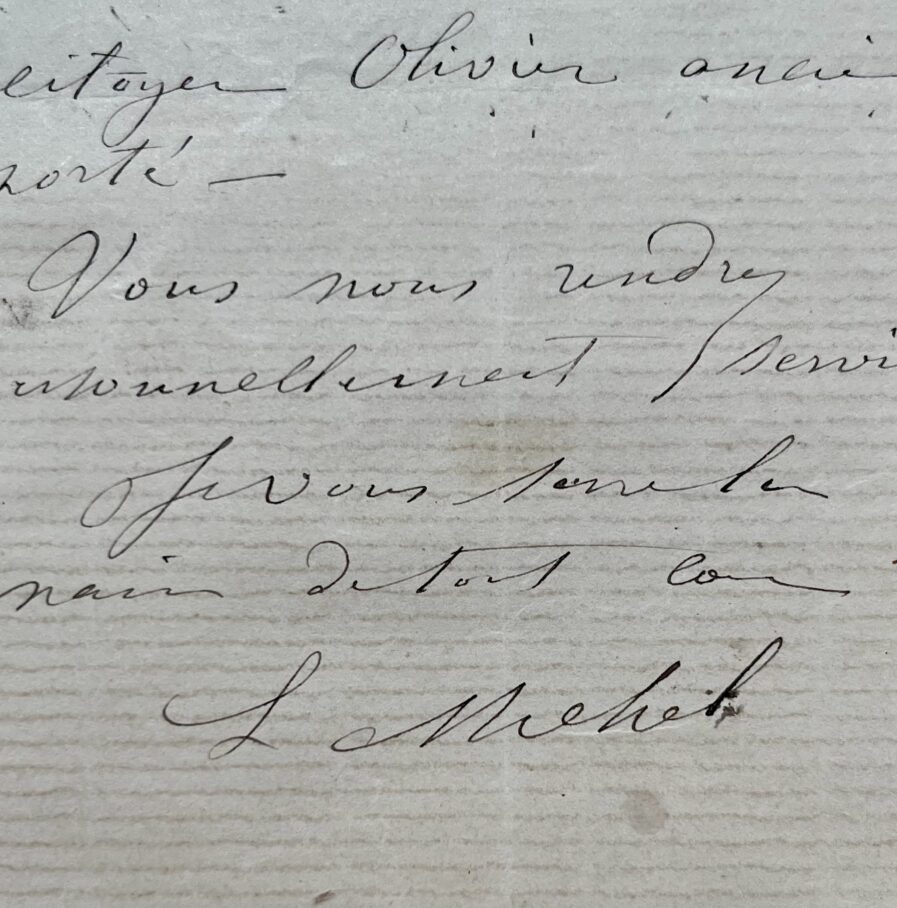 citoyen Olivier ancie
porté —
Vous nous rendrez
ersonnellement servi
Je vous serre la
main de tout cœur
L Michel